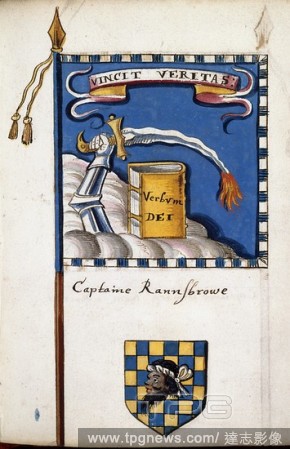 VINCIT VERITAS:
Verbvm
DEI
Captaine Rannsbrowe
TPG
www.tpgnews.com/ 達志影像